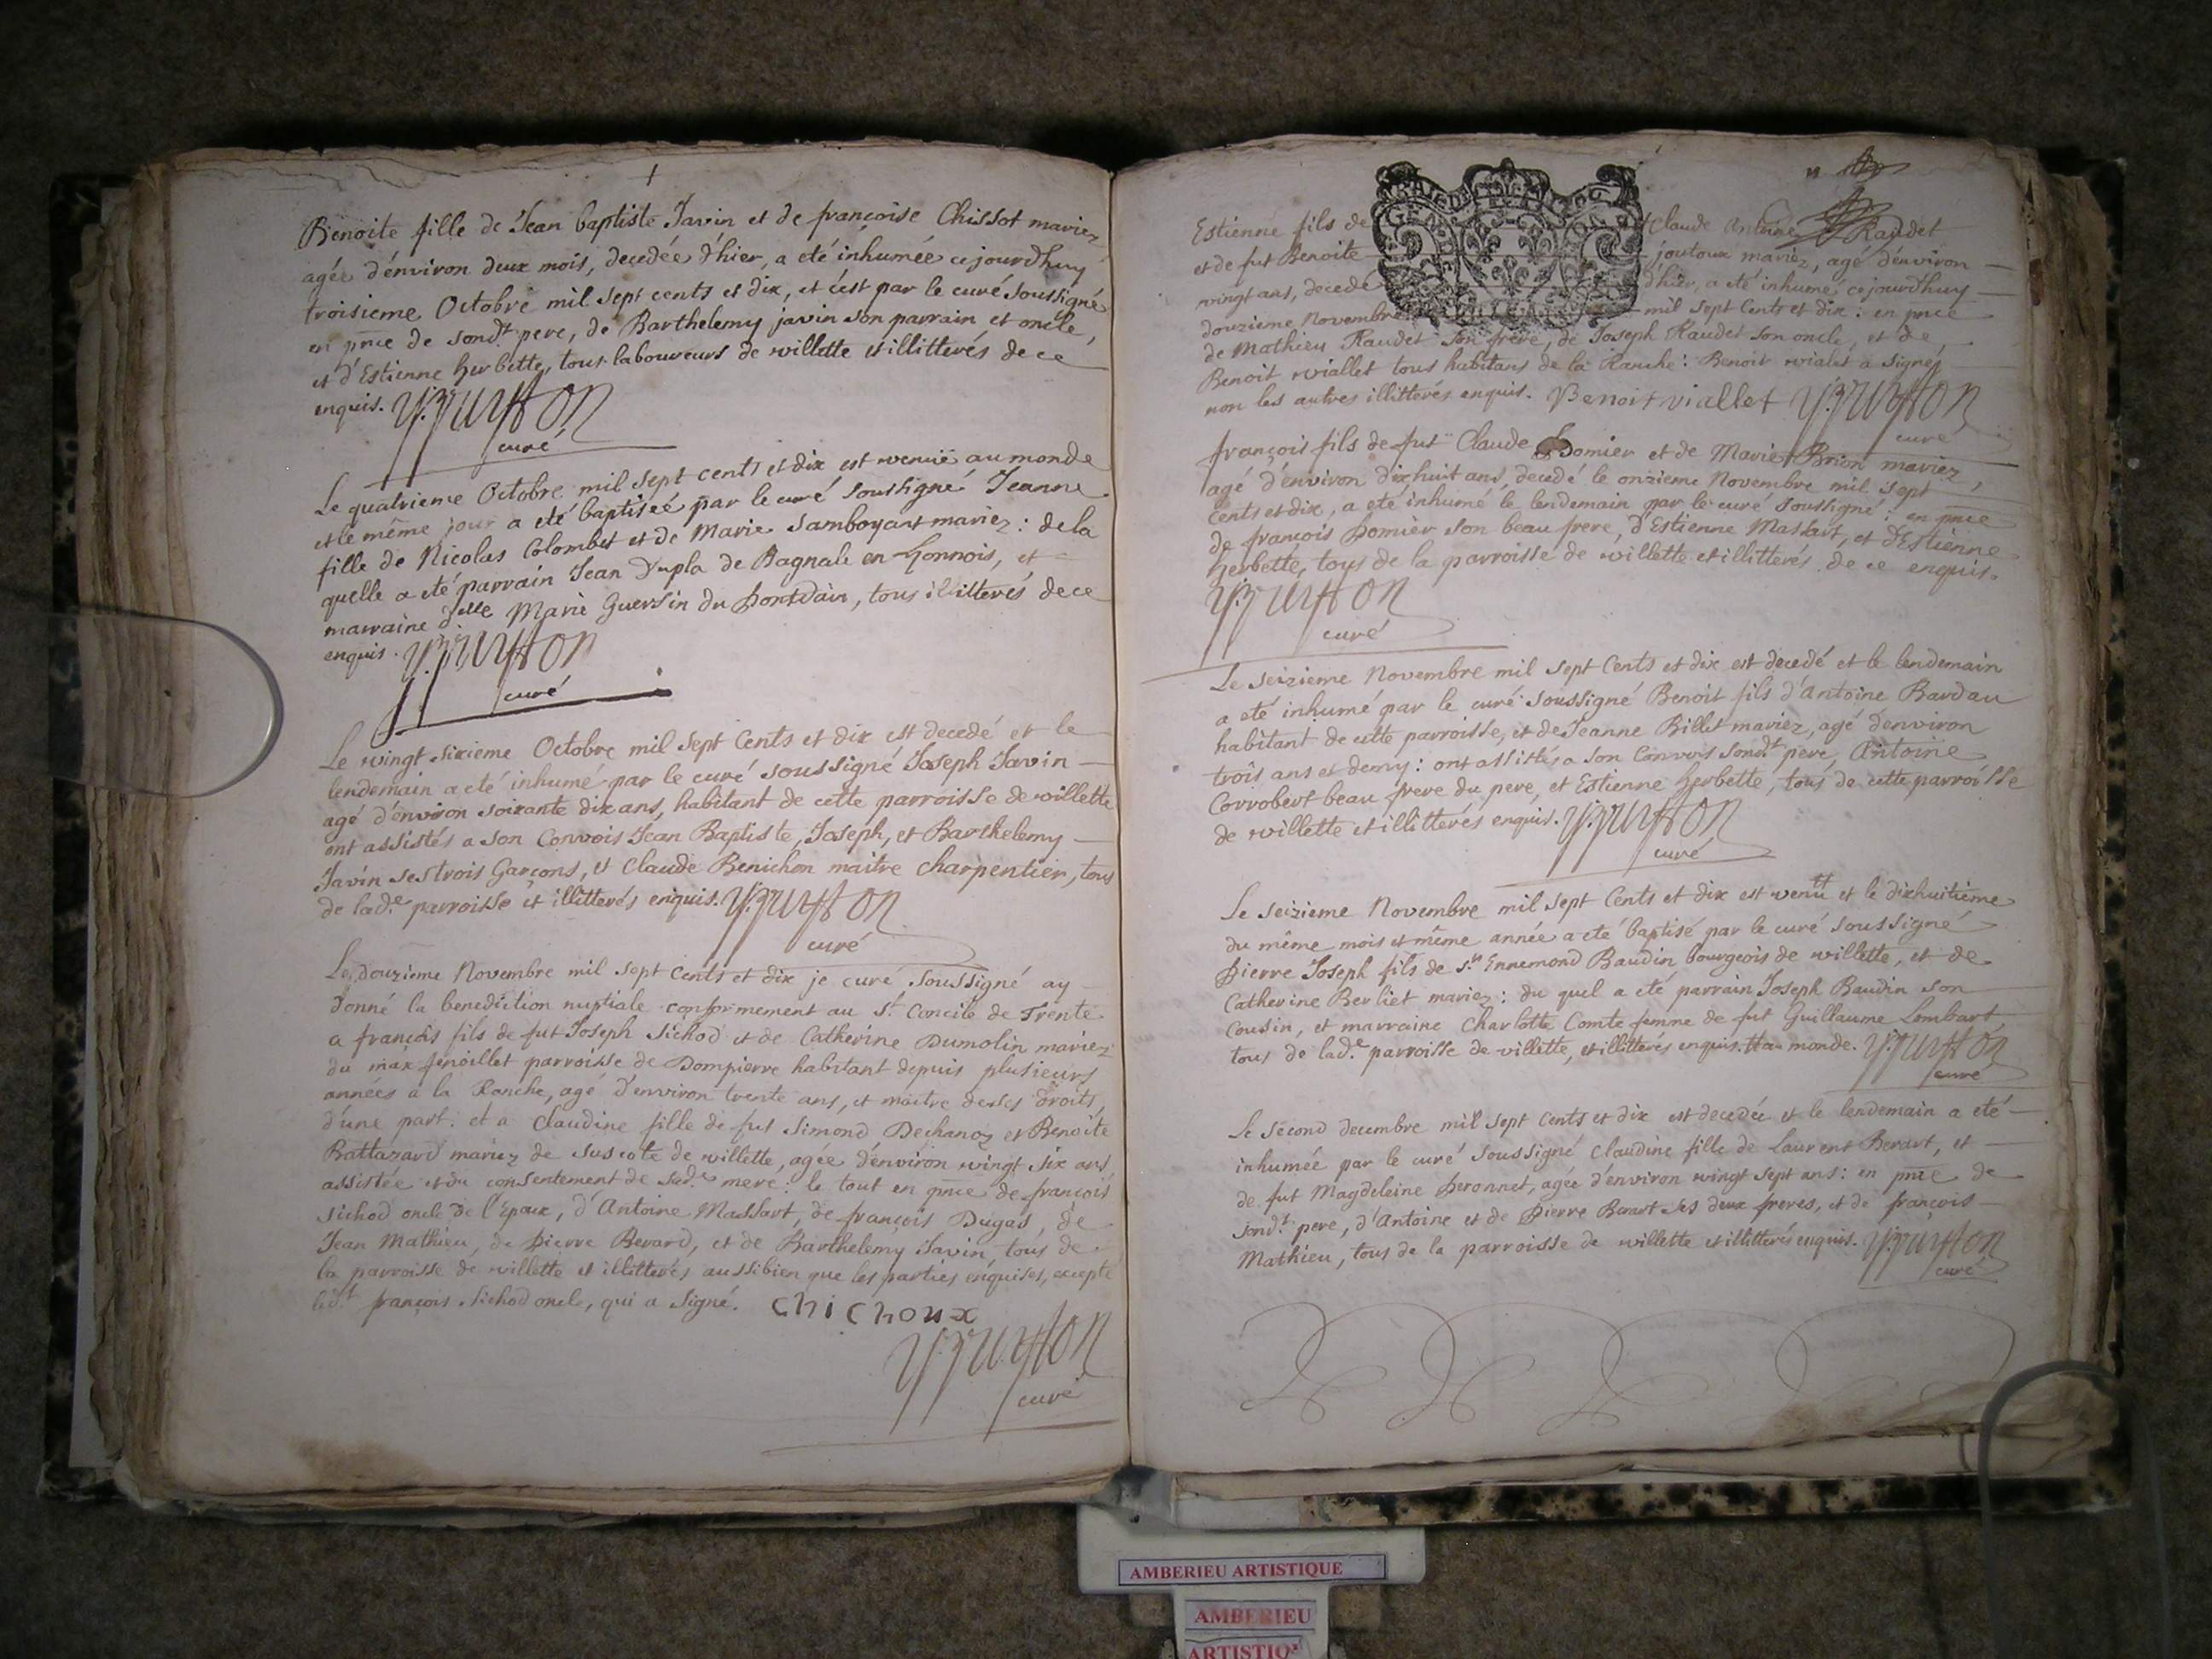 Benoite fille de Jean baptiste Javin et de françoise Chissot mariez
agée d'énviron deux mois, decedée d'hier, a eté inhumée cejourd'huy
troisieme Octobre mil sept cents et dix, et c'est par le curé soussigné
en pñce de sond.t pere, de Barthelemy javin son parrain et oncle,
et d'Estienne herbette, tous laboureurs de villette et illitterés de ce
enquis.
curé
Le quatrieme Octobre mil sept cents et dix est venuë au monde
et le même jour a eté baptiseé par le curé soussigné Jeanne
fille de Nicolas Colombet et de Marie Samboyant mariez : de la
quelle a eté parrain Jean Dupla de Bagnale en Lyonnois, et
marraine d.elle Marie Guersin du pontdain, tous illitterés de ce
enquis.
curé
Le vingt sixieme Octobre mil sept Cents et dix est decedé et le
lendemain a eté inhumé par le curé soussigné Joseph Javin
agé d'énviron soixante dix ans, habitant de cette parroisse de villette
ont assistés a son Convois Jean Baptiste, Joseph, et Barthelemy
Javin ses trois Garçons, et Claude Benichon maitre charpentier, tous
de lad.e parroisse et illitterés enquis.
curé
Le douzieme Novembre mil sept cents et dix je curé soussigné ay
donné la benediction nuptiale conformement au S.t Concile de Trente
a françois fils de fut Joseph Sichod et de Catherine Dumolin mariez
du max fenoillet parroisse de Dompierre habitant depuis plusieurs
années a la Ranche, agé d'énviron trente ans, et maitre de ses droits
d'une part : et a Claudine fille de fut Simond Dechanoz et Benoite
Battazard mariez de suscote de villette, ageé d'énviron vingt six ans
assistée et du consentement de sad.e mere : le tout en pñce de françois
Sichod oncle de l'Epoux, d'Antoine Massart, de françois Dugas, de
Jean Mathieu, de pierre Berard, et de Barthelemy Javin, tous de
la parroisse de villette et illitterés aussibien que les parties enquises, excepté
led.t françois Sichod oncle, qui a signé. Chichoux
curé
Estienne fils de Claude Antoine Raudet
et de fut Benoite joutoux mariez, agé d'énviron
vingt ans, decedé d'hier, a eté inhumé cejourd'huy
douzieme Novembre mil sept Cents et dix : en pñce
de Mathieu Raudet son frere, de Joseph Raudet son oncle, et de
Benoit vialet tous habitans de la Ranche : Benoit vialet a signé
non les autres illitterés enquis. Benoit viallet
curé
françois fils de fut Claude pomier et de Marie Brion mariez,
agé d'énviron dixhuit ans, decedé le onzieme Novembre mil sept
Cents et dix, a eté inhumé le lendemain par le curé soussigné : en pñce
de françois pomier son beau frere, d'Estienne Massart, et d'Estienne
herbette, tous de la parroisse de villette et illitterés de ce enquis.
curé
Le seizieme Novembre mil sept Cents et dix est decedé et le lendemain
a eté inhumé par le curé soussigné Benoit fils d'Antoine Bardau
habitant de cette parroisse, et de Jeanne Billet mariez, agé d'énviron
trois ans et demy : ont assistés a son Convoys sond.t pere, Antoine
Corrobert beau frere du pere, et Estienne herbette, tous de cette parroisse
de villette et illitterés enquis.
curé
Le seizieme Novembre mil sept Cents et dix est venu tt et le dixhuitieme
du même mois et même année a eté baptisé par le curé soussigné
pierre Joseph fils de s.r Ennemond Baudin bourgeois de villette, et de
Catherine Berliet mariez : du quel a eté parrain Joseph Baudin son
Cousin, et marraine Charlotte Comte femme de fut Guillaume Lombart
tous de lad.e parroisse de villette, et illitterés enquis. tt au monde.
curé
Le second decembre mil sept Cents et dix est decedée et le lendemain a eté
inhumée par le curé soussigné Claudine fille de Laurent Berart, et
de fut Magdeleine peronnet, agée d'énviron vingt sept ans : en pñce de
sond.t pere, d'Antoine et de pierre Berart ses deux freres, et de françois
Mathieu, tous de la parroisse de villette et illitterés enquis.
curé
AMBERIEU ARTISTIQUE
AMBERIEU